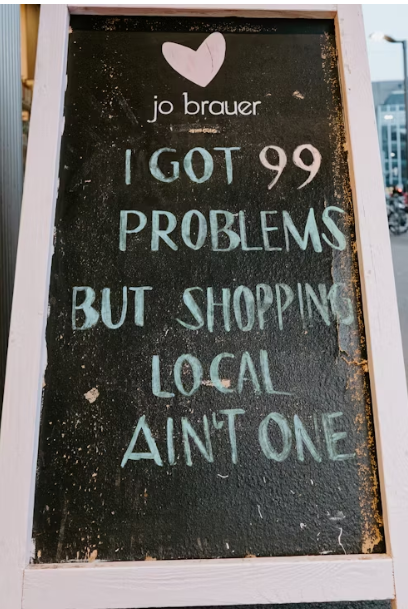 jo brauer
I GOT 99
PROBLEMS
BUT SHOPPING
LOCAL
AIN'T ONE